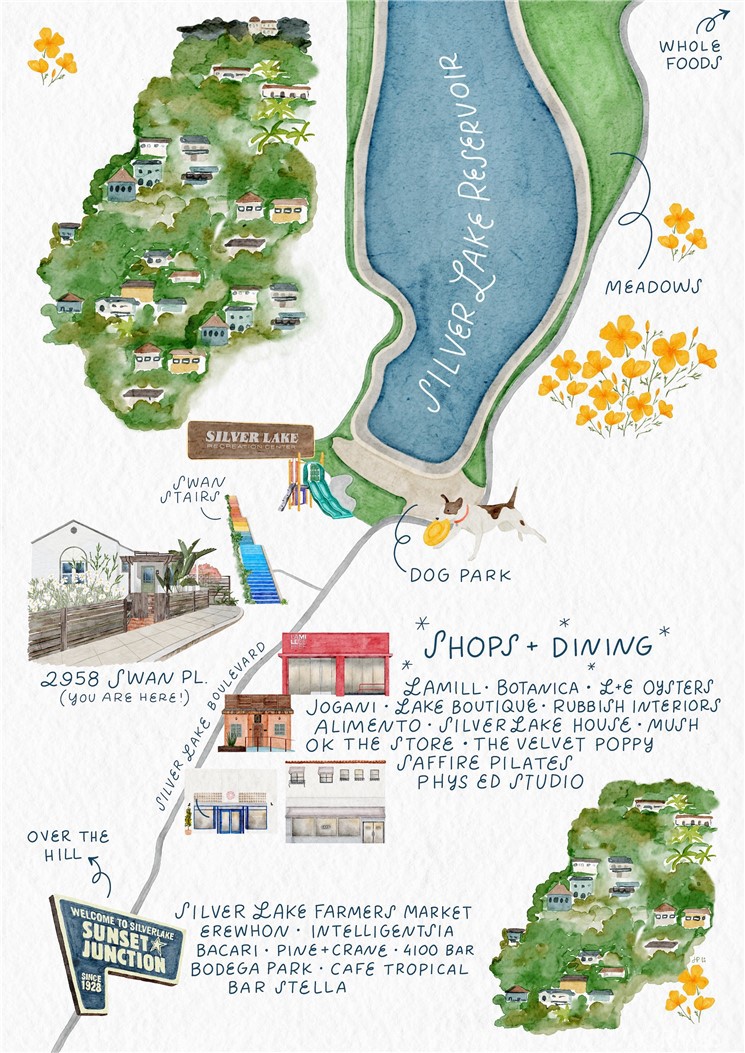 WHOLE
FOODS
SILVER LAKE RESERVOIR
MEADOWS
SILVER LAKE
RECREATION CENTER
SWAN
STAIRS
DOG PARK
2958 SWAN PL.
(YOU ARE HERE!)
SILVER LAKE BOULEVARD
*SHOPS + DINING*
LAMILL · BOTANICA · L+E OYSTERS
JOGANI · LAKE BOUTIQUE · RUBBISH INTERIORS
ALIMENTO · SILVER LAKE HOUSE · MUSH
OK THE STORE · THE VELVET POPPY
SAFFIRE PILATES
PHYS ED STUDIO
OVER THE
HILL
WELCOME TO SILVERLAKE
SUNSET
JUNCTION
SINCE
1928
SILVER LAKE FARMERS MARKET
EREWHON · INTELLIGENTSIA
BACARI · PINE+CRANE · 4100 BAR
BODEGA PARK · CAFE TROPICAL
BAR STELLA